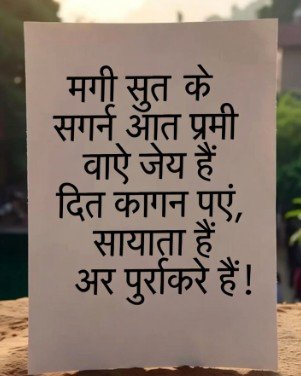 मगी सुत के
सगर्न आत प्रमी
वाऐ जेय हैं
दित कागन पएं,
सायाता हैं
अर पुर्राकरे हैं!